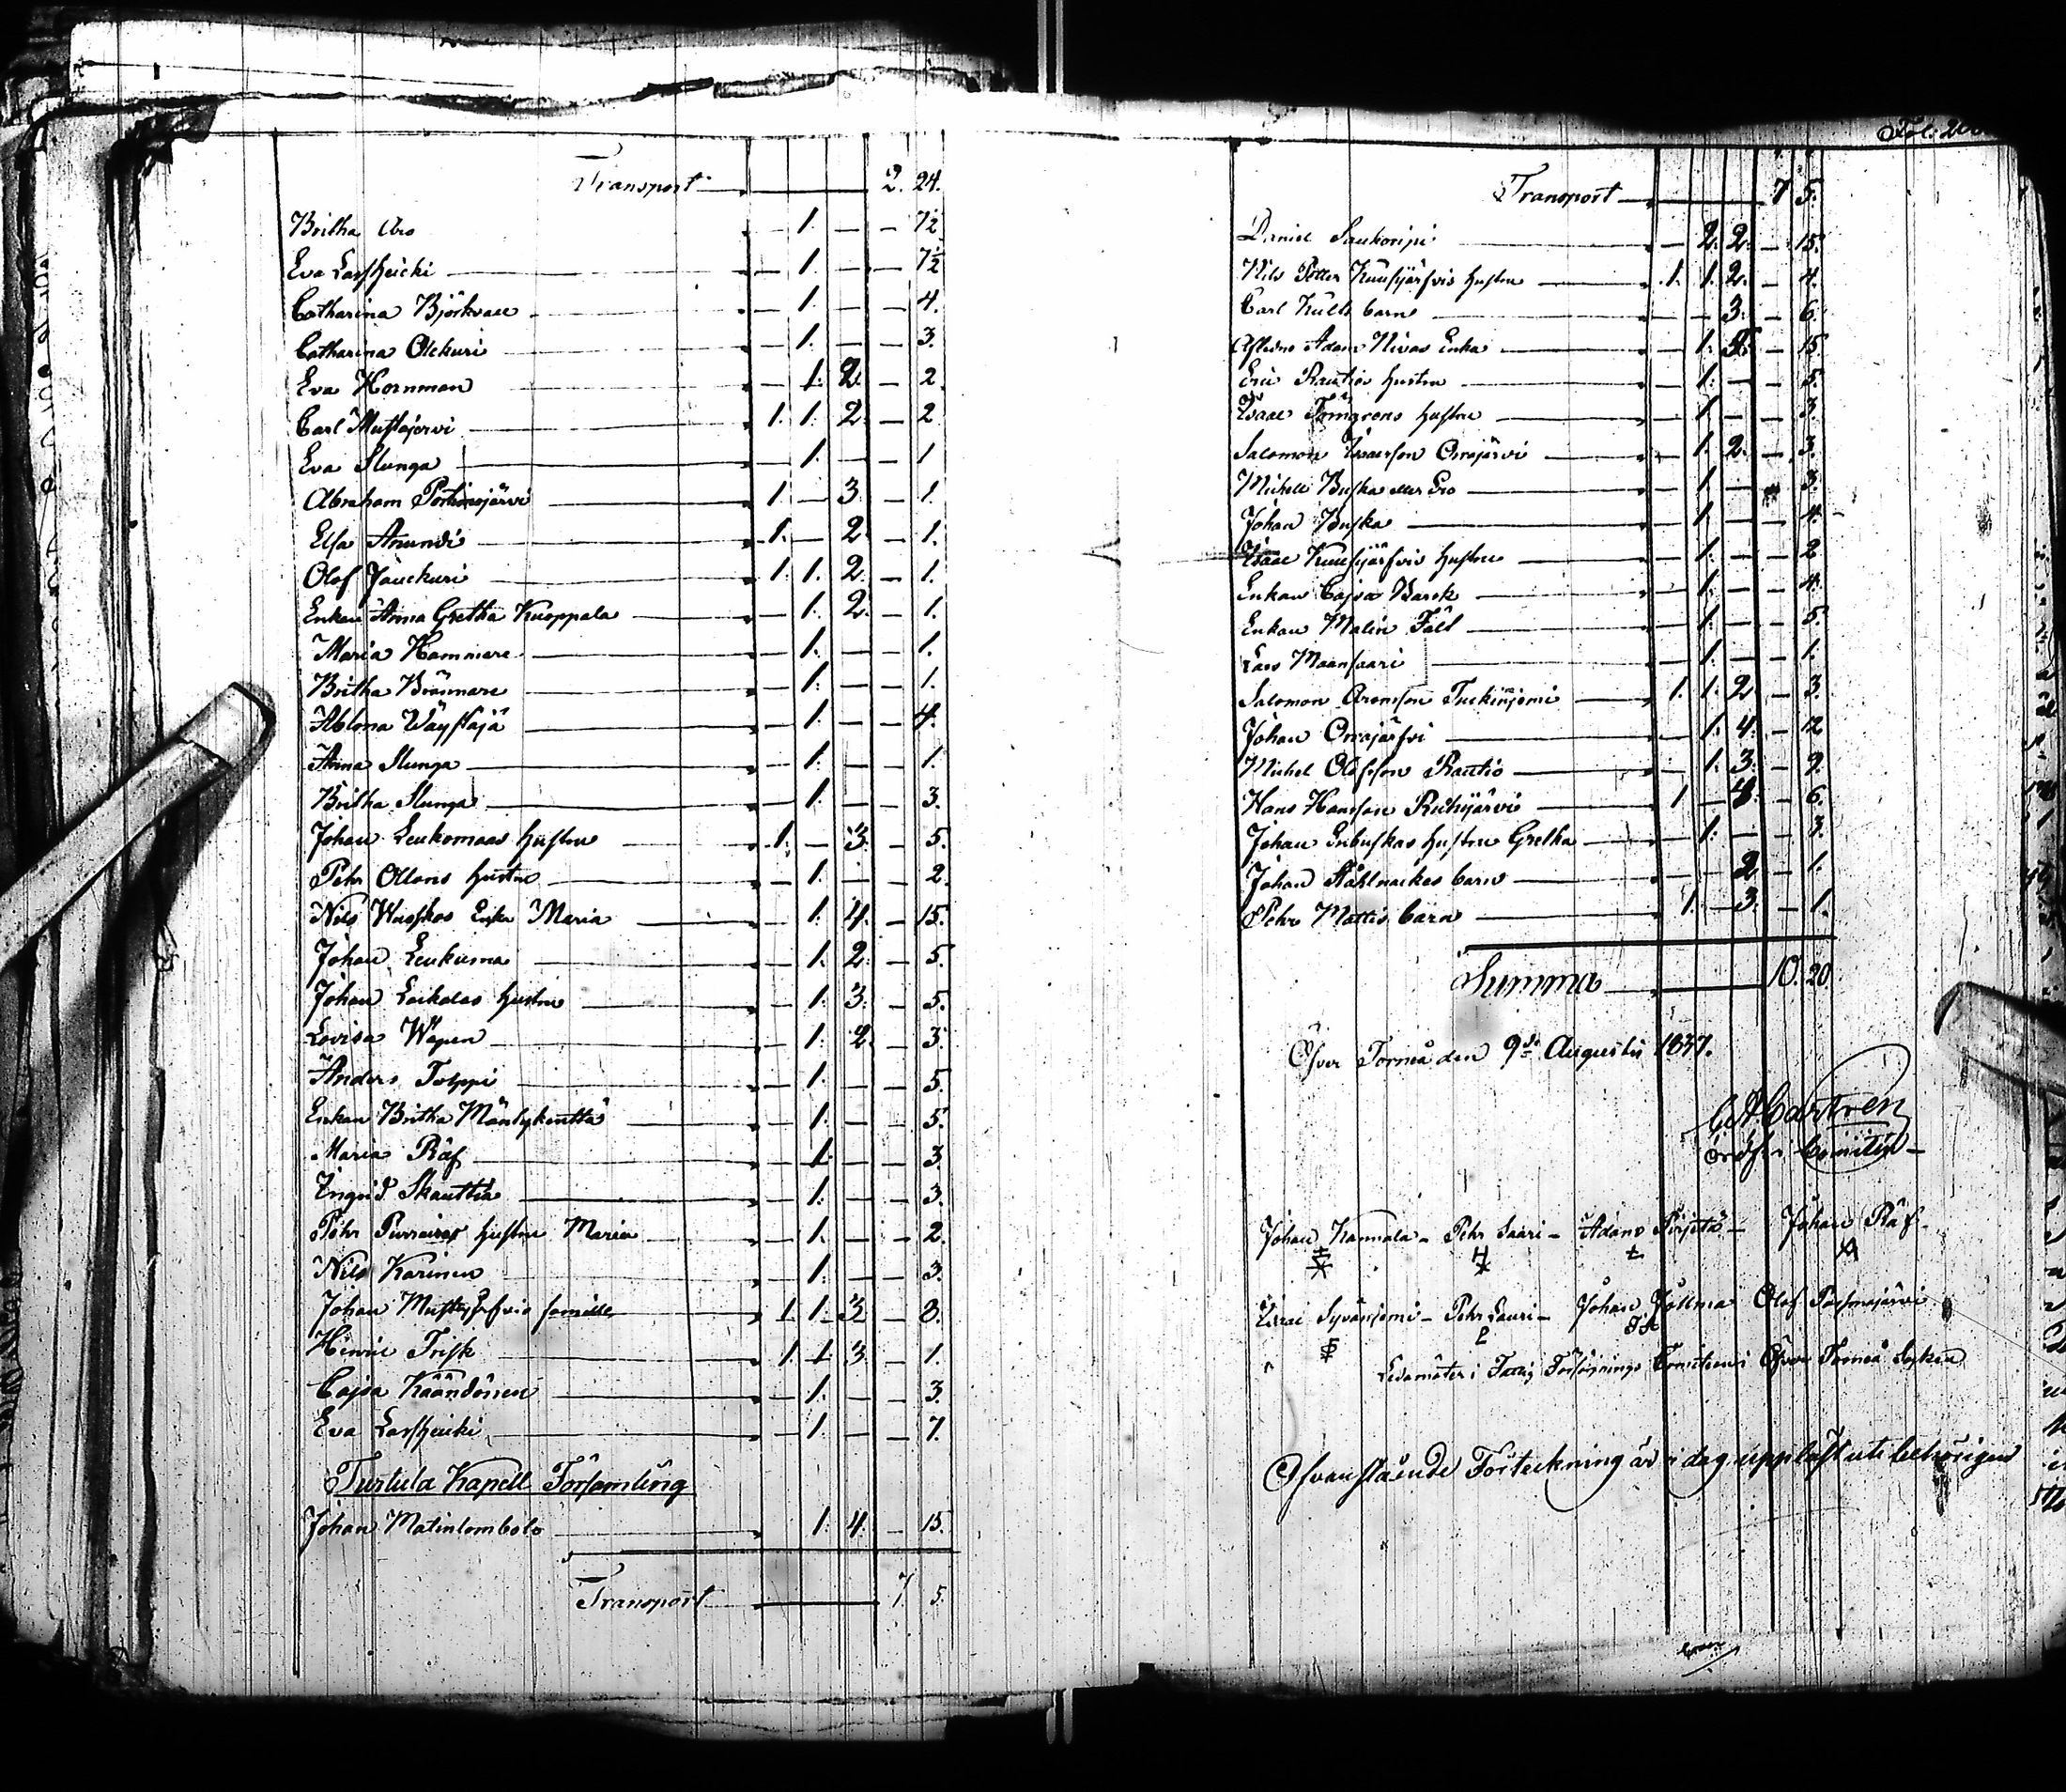 Transport 2. 24.
Britha Aro 1. — — 7½
Eva Lassheicki — 1. — — 7½
Catharina Björkvall 1. — — 4.
Catharina Olckuri 1. — — 3.
Eva Hornman — 1. 2. — 2.
Carl Mustajervi 1. 1. 2. — 2
Eva Slunga — 1. — — 1
Abraham Portimojärvi 1. — 3. — 1.
Elsa Anundi 1. — 2. — 1.
Olof Jauckuri 1. 1. 2. — 1.
Enkan Anna Gretha Kuoppala — 1. 2. — 1.
Maria Hammare — 1. — — 1.
Britha Brännare — 1. — — 1.
Ablona — 1. — — 4.
Anna Slunga — 1. — — 1.
Britha Slunga — 1. — — 3.
Johan Leukomaas hustru 1. — 3. — 5.
Pehr Ollons hustru — 1. — — 2.
Nils Enka Maria — 1. 4. — 15.
Johan Leukuma — 1. 2. — 5.
Johan Laikalas hustru — 1. 3. — 5.
Lovisa Wapen — 1. 2. — 3.
Anders Tolppi — 1. — — 5.
Enkan Britha Mäntykenttä — 1. — — 5.
Maria Räf — 1. — — 3.
Ingrid Skauttia — 1. — — 3.
Pehr hustru Maria — 1. — — 2.
Nils Karinen — 1. — — 3.
Johan famille 1. 1. 3 — 8.
Henric Frisk 1. 1. 3. — 1.
Cajsa Käändönen — 1. — — 3.
Eva Lassheicki — 1. — — 7.
Turtula Kapell Församling
Johan Matinlombolo 1. 4. — 15.
Transport 7 5.
Fol.
Transport 7 5.
Daniel Saukoripi — 2. 2. — 15.
Nils Petter Kuusijärfvis hustru 1. 1. 2. — 4.
Carl Kults barn — — 3. — 6.
Aflidne Adam Nivas Enka — 1. — 15.
Eric Rautios hustru — 1. — — 5.
Isaac Törngrens hustru — 1. — — 3.
Salomon Isacsson Orrojärvi — 1. 2. — 3.
Michell Buska eller Ero — 1. — 3.
Johan Buska — 1. — — 4.
Isaac Kuusijärfvis hustru — 1. — — 2
Enkan Cajsa Barck — 1. — — 4.
Enkan Malin Fält — 1. — — 5.
Lars Maansaari — 1. — — 1.
Salomon Aronsson 1. 1. 2. — 3.
Johan Orrajärfvi — 1. 4. — 12
Michel Olofsson Rautio — 1. 3. — 9.
Hans Hansson Ruhijärvi 1 — — 6.
Johan hustru Gretha — 1. — — 3.
Johan Ståhlnackes barn — — 2. — 1.
Pehr Mattis barn 1. — 3. — 1.
Summa 10. 20.
Öfver Torneå den 9de Augusti 1837.
C A Castren
Ordf. i Comitén —
Johan Kannala — Pehr Saari — Adam Pirjetä — Johan Räf
Isaac Syvänjemi — Pehr Lauri — Johan Olof
Ledamöter i Fattig Försörjnings Comiteen i Öfver Torneå Socken
Ofvanstående Förteckning är i dag uppläst uti behörigen